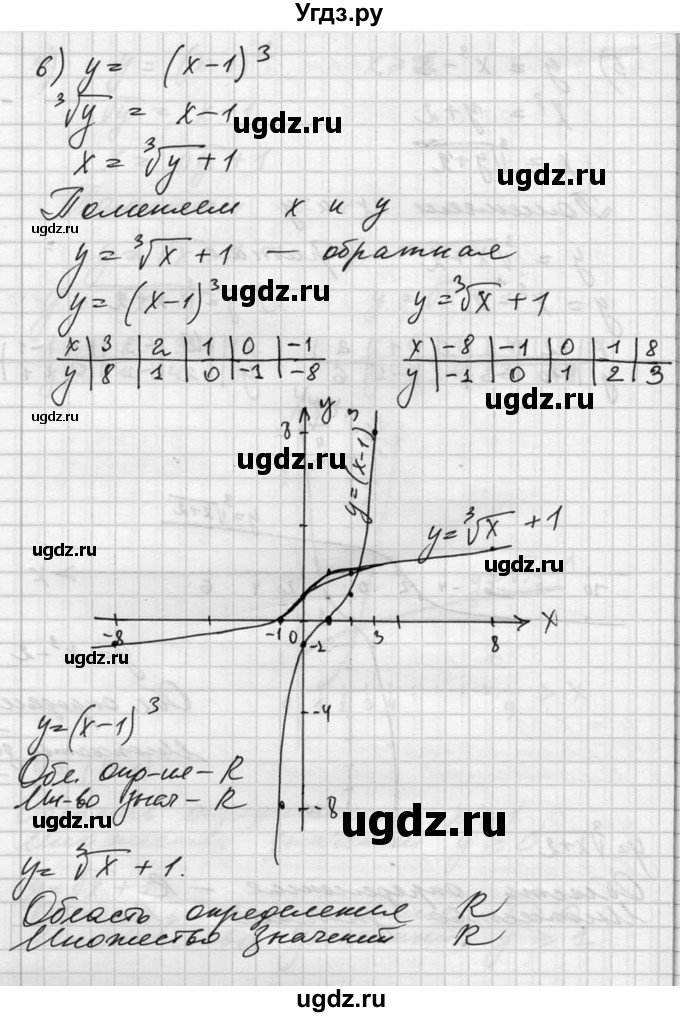 Угдз.ру
6) y = (x-1)³
∛y = x-1
ugdz.ru
x = ∛y + 1
ugdz.ru
Поменяем x и y
ugdz.ru
y = ∛x + 1 — обратная
y = (x-1)³
ugdz.ru
y = ∛x + 1
x | 3 | 2 | 1 | 0 | -1
y | 8 | 1 | 0 | -1 | -8
x | -8 | -1 | 0 | 1 | 8
y | -1 | 0 | 1 | 2 | 3
ugdz.ru
ugdz.ru
y
8
ugdz.ru
y=(x-1)³
y=∛x + 1
ugdz.ru
ugdz.ru
-8
-1
0
3
8
x
-1
ugdz.ru
-4
y=(x-1)³
Обл. опр-ия - R
Мн-во знач - R
-8
ugdz.ru
ugdz.ru
y= ∛x + 1.
Область определения R
Множество значений R
ugdz.ru
ugdz.ru